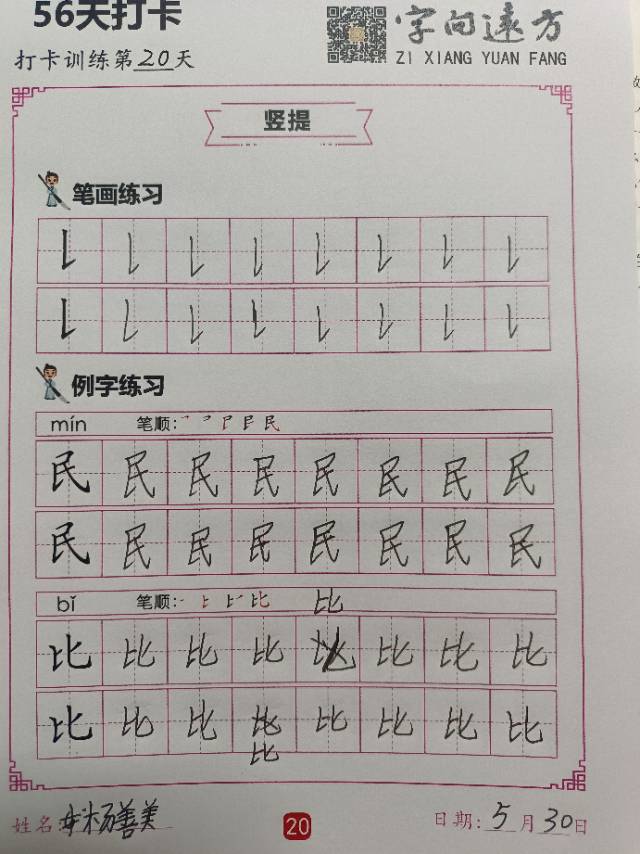 56天打卡
字向远方
打卡训练第20天
ZI XIANG YUAN FANG
竖提
笔画练习
例字练习
mín 笔顺:
民 民 民 民 民 民 民 民
民 民 民 民 民 民 民 民
bǐ 笔顺:
比
比 比 比 比 比 比 比
比 比 比 比 比 比 比
比
姓名: 杨善美
20
日期: 5月30日